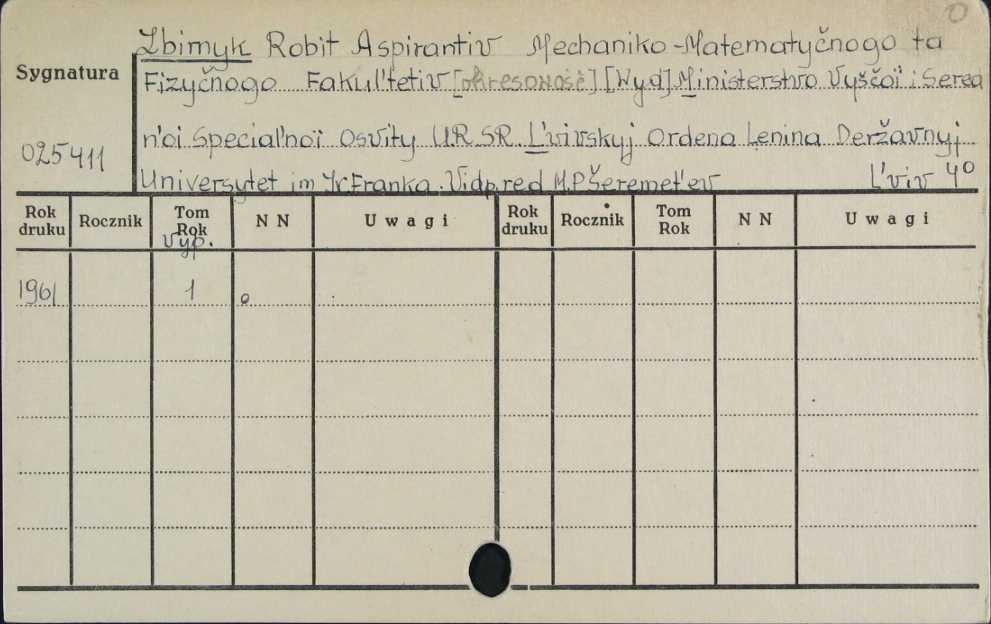 0
Zbirnyk Robit Aspirantiv Mechaniko-Matematyčnogo ta
Sygnatura Fizyčnogo Fakul'tetiv [okresowość] [Wyd] Ministerstvo Vyščoï i Sered
025411 n'oi Special'noï Osvity U.R.SR. L'vivskyj Ordena Lenina Deržavnyj
Universytet im Iv. Franka. Vidp. red M.P Šeremet'ev L'viv 4°
Rok druku Rocznik Tom Rok Vyp. N N Uwagi Rok druku Rocznik Tom Rok N N Uwagi
1961 1 o